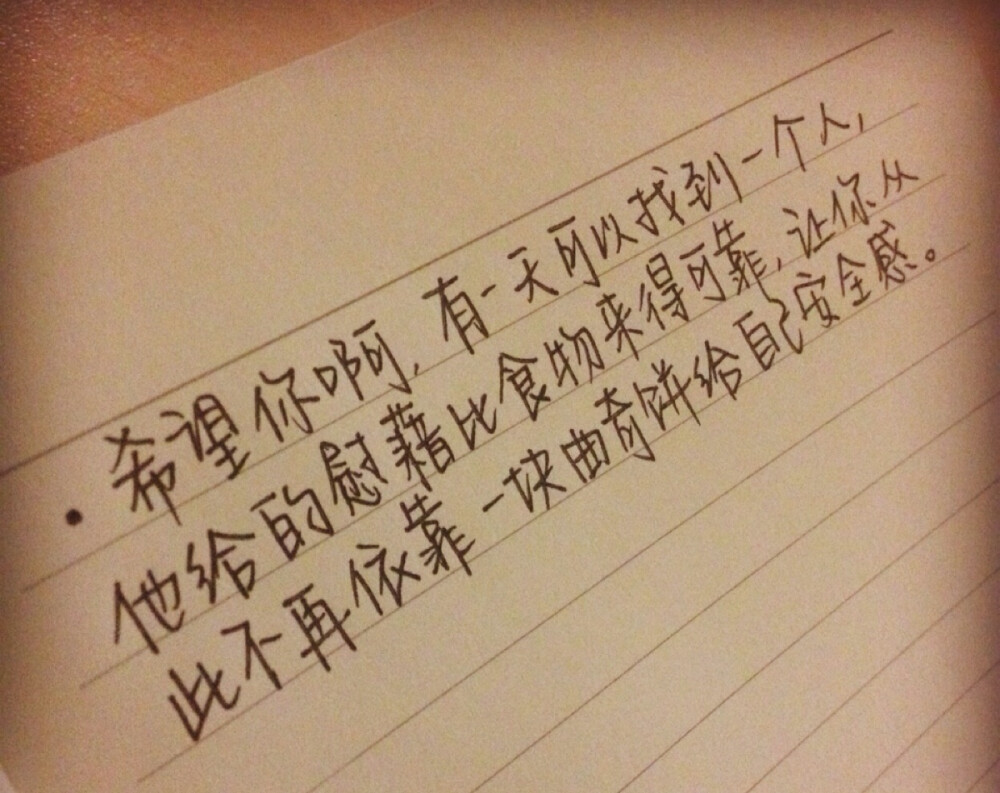 ·希望你啊,有一天可以找到一个人,
他给的慰藉比食物来得可靠,让你从
此不再依靠一块曲奇饼给自己安全感。